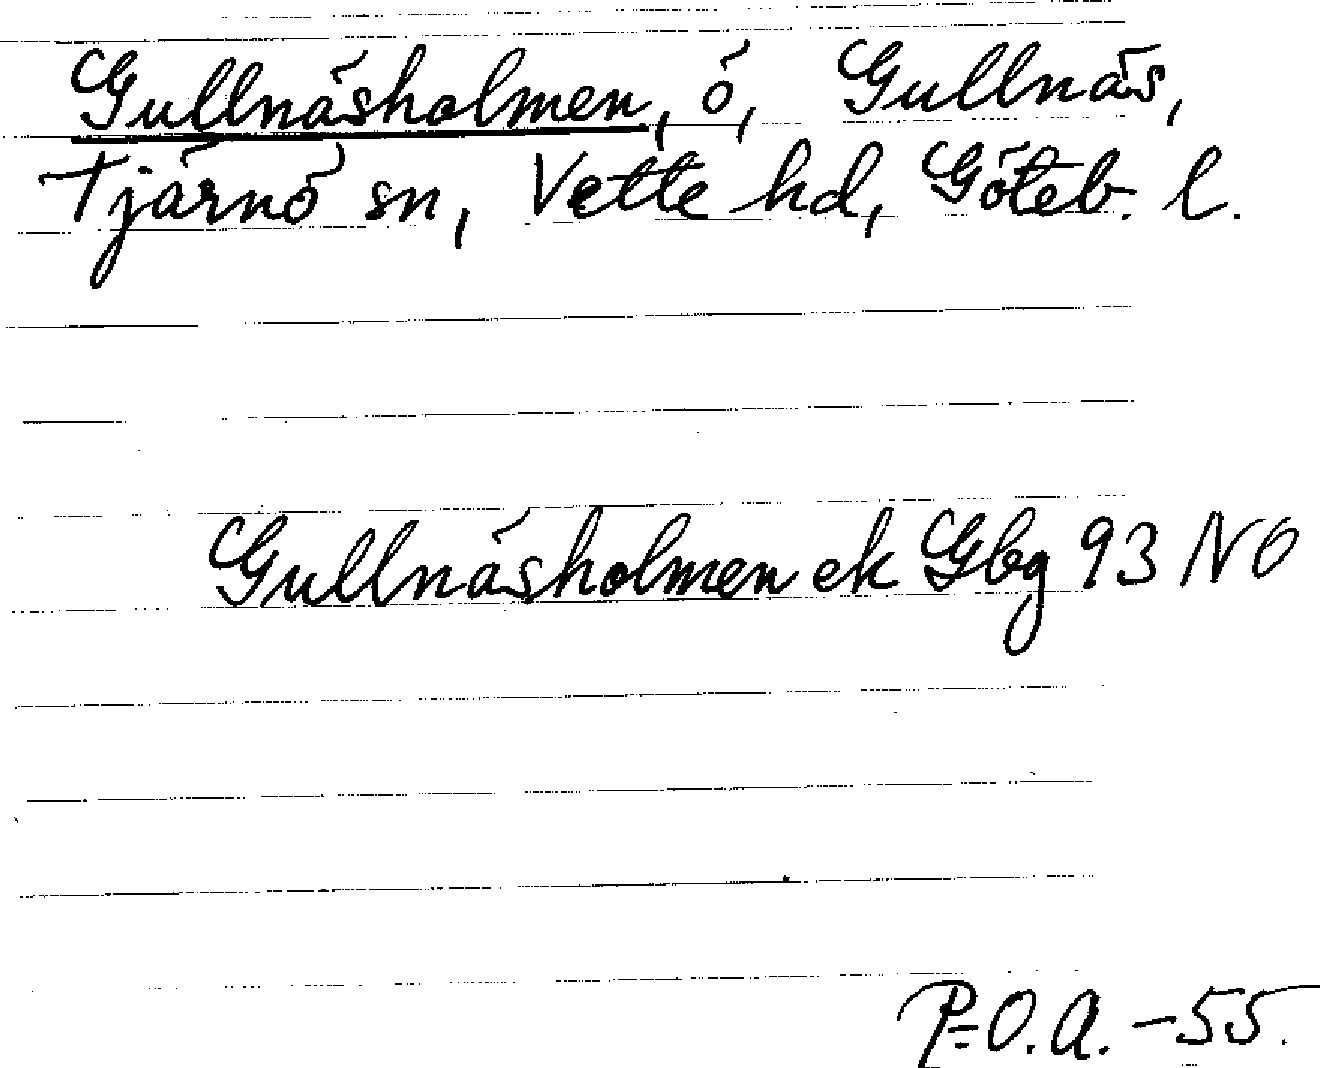 Gullnäsholmen, ö, Gullnäs,
Tjärnö sn, Vette hd, Göteb. l.
Gullnäsholmen ek Gbg 93 NO
P-O.A. -55.